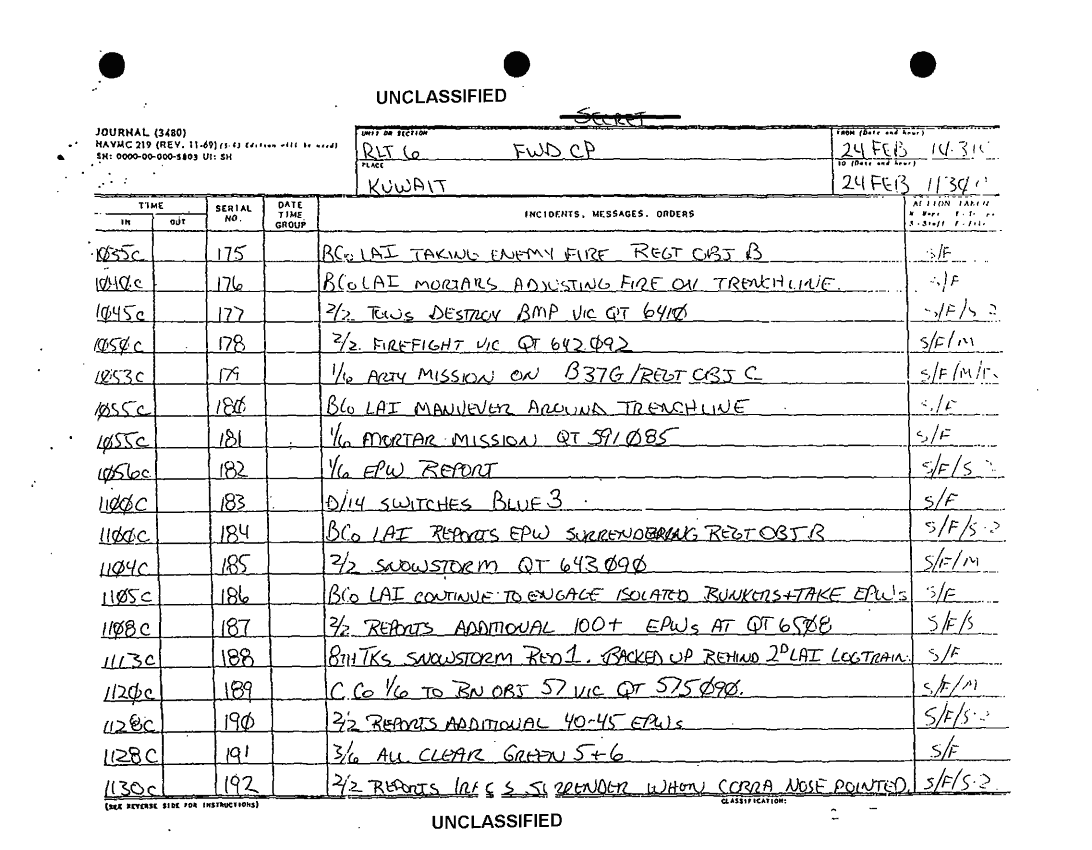 UNCLASSIFIED
SECRET
JOURNAL (3480)
NAVMC 219 (REV. 11-69) (8-63 Edition will be used)
SN: 0000-00-000-5803 UI: SH
UNIT OR SECTION
RLT 6 FWD CP
PLACE
KUWAIT
FROM (Date and hour)
24 FEB
TO (Date and hour)
24 FEB
TIME
IN OUT
SERIAL NO.
DATE TIME GROUP
INCIDENTS, MESSAGES, ORDERS
ACTION TAKEN
1035C 175 BCo LAI TAKING ENEMY FIRE REGT OBJ B S/F
1040C 176 BCo LAI MORTARS ADJUSTING FIRE ON TRENCHLINE. S/F
1045C 177 2/2 TOWS DESTROY BMP VIC QT 6410 S/F/S-2
1050C 178 2/2 FIREFIGHT VIC QT 642092 S/F/M
1053C 179 1/6 ARTY MISSION ON B37G/REGT OBJ C S/F/M
1055C 180 BCo LAI MANUEVER AROUND TRENCHLINE S/F
1055C 181 1/6 MORTAR MISSION QT 591085 S/F
1056C 182 1/6 EPW REPORT S/F/S-2
1100C 183 D/14 SWITCHES BLUE 3 S/F
1100C 184 BCo LAI REPORTS EPW SURRENDERING REGT OBJ B S/F/S-2
1104C 185 2/2 SNOWSTORM QT 643090 S/F/M
1105C 186 BCo LAI CONTINUE TO ENGAGE ISOLATED BUNKERS + TAKE EPW's S/F
1108C 187 2/2 REPORTS ADDITIONAL 100+ EPWs AT QT 6508 S/F/S
1113C 188 8TH TKS SNOWSTORM RED 1. BACKED UP BEHIND 2D LAI LOGTRAIN. S/F
1120C 189 C Co 1/6 TO BN OBJ 57 VIC QT 575090. S/F/M
1128C 190 2/2 REPORTS ADDITIONAL 40-45 EPWs S/F/S-2
1128C 191 3/6 ALL CLEAR GREEN 5+6 S/F
1130C 192 2/2 REPORTS SURRENDER WHEN COBRA NOSE POINTED. S/F/S-2
(SEE REVERSE SIDE FOR INSTRUCTIONS)
CLASSIFICATION:
UNCLASSIFIED